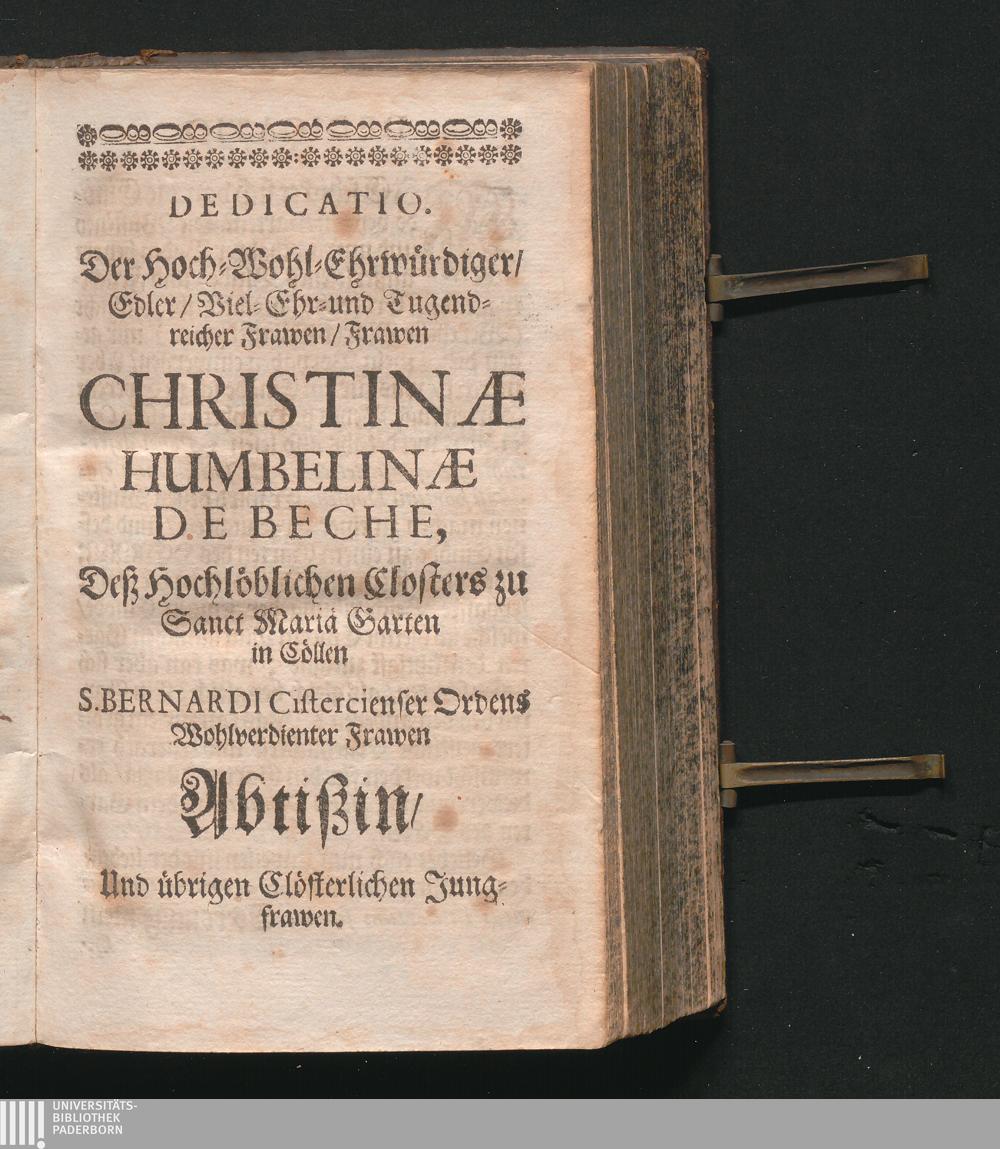 DEDICATIO.
Der Hoch-Wohl-Ehrwürdiger/
Edler/ Viel-Ehr-und Tugend-
reicher Frawen/ Frawen
CHRISTINÆ
HUMBELINÆ
DE BECHE,
Deß Hochlöblichen Closters zu
Sanct Mariä Garten
in Cöllen
S. BERNARDI Cistercienser Ordens
Wohlverdienter Frawen
Abtißin/
Und übrigen Clösterlichen Jung-
frawen.
UNIVERSITÄTS-
BIBLIOTHEK
PADERBORN